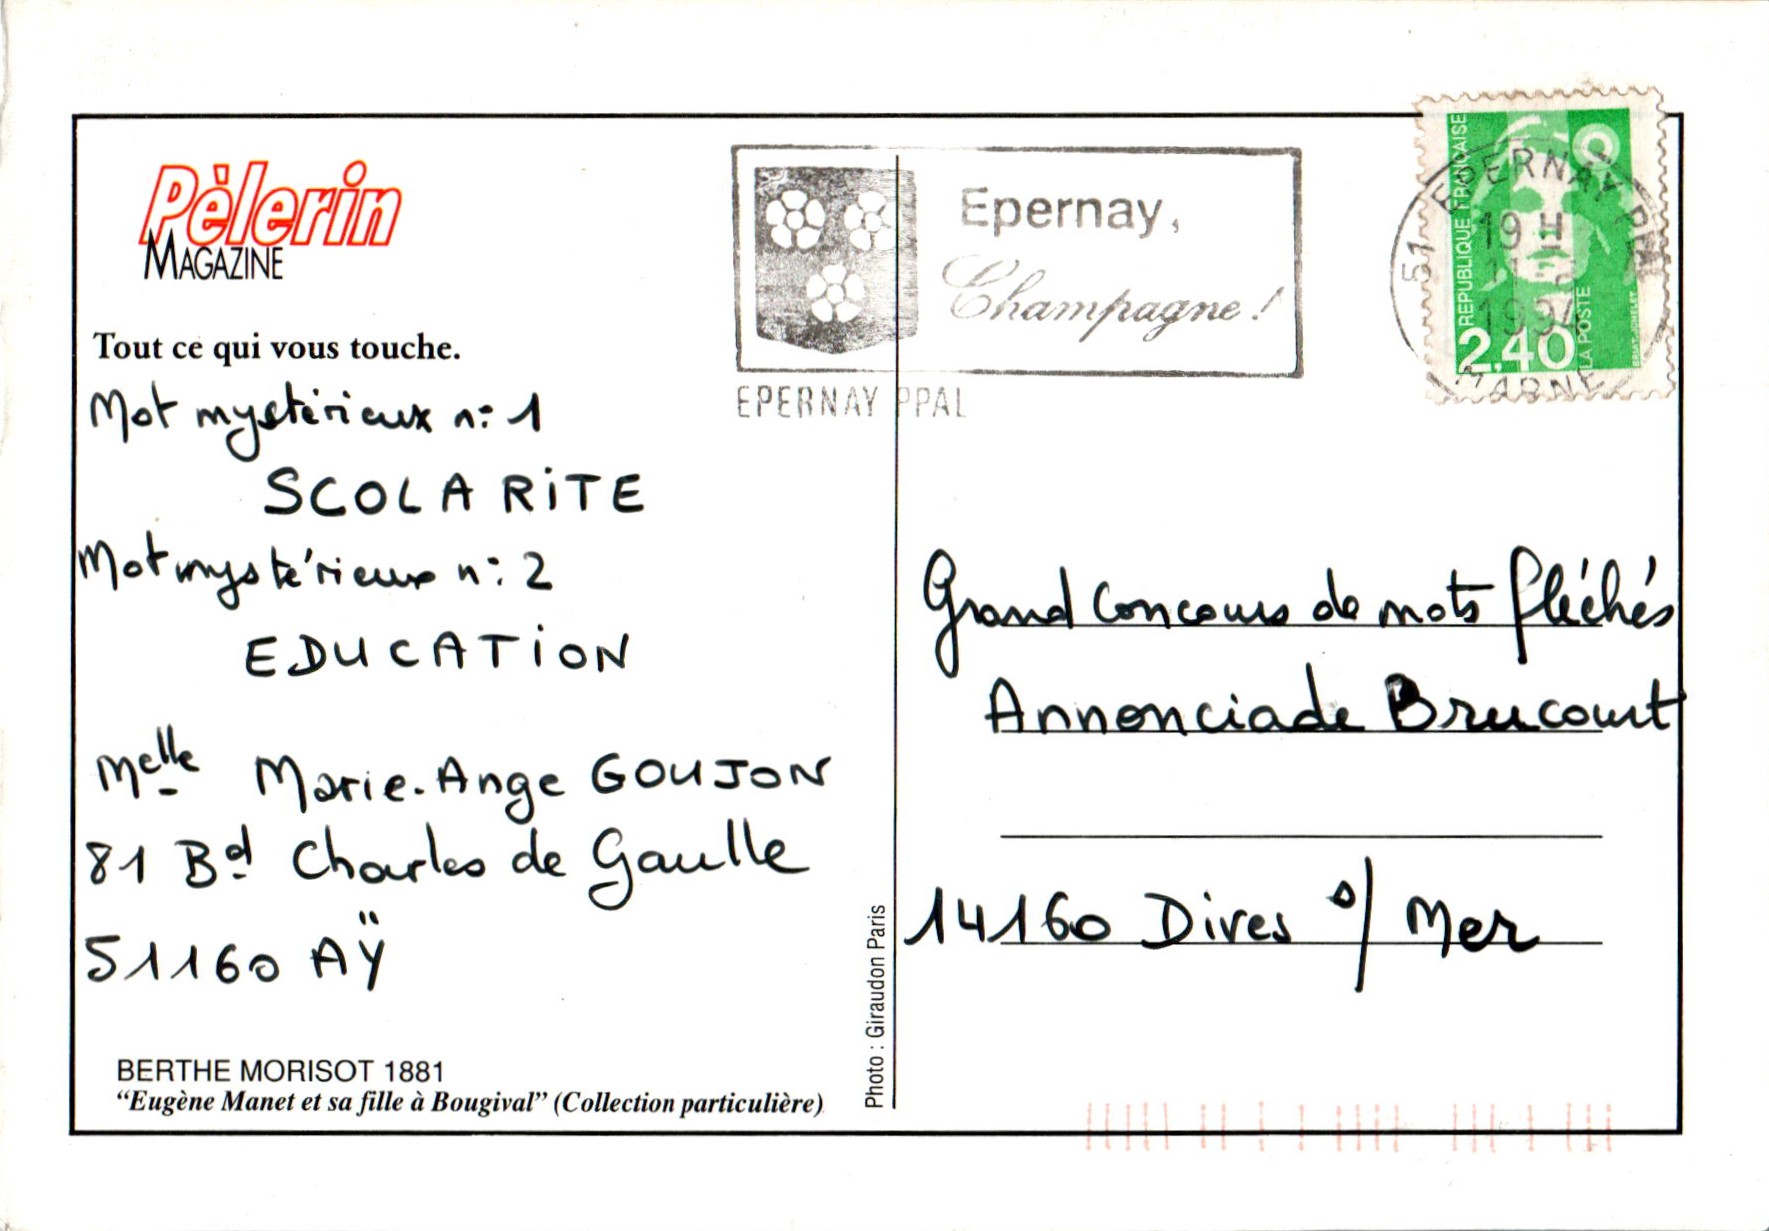 Pèlerin
MAGAZINE
Tout ce qui vous touche.
Mot mystérieux n: 1
SCOLARITE
Mot mystérieux n: 2
EDUCATION
Melle Marie-Ange GOUJON
81 Bd Charles de Gaulle
51160 AŸ
BERTHE MORISOT 1881
“Eugène Manet et sa fille à Bougival” (Collection particulière)
Photo : Giraudon Paris
Epernay,
Champagne !
EPERNAY PPAL
REPUBLIQUE FRANÇAISE
2,40
LA POSTE
51 EPERNAY PPAL
19 H
MARNE
Grand Concours de mots fléchés
Annonciade Brucourt
14160 Dives s/ Mer